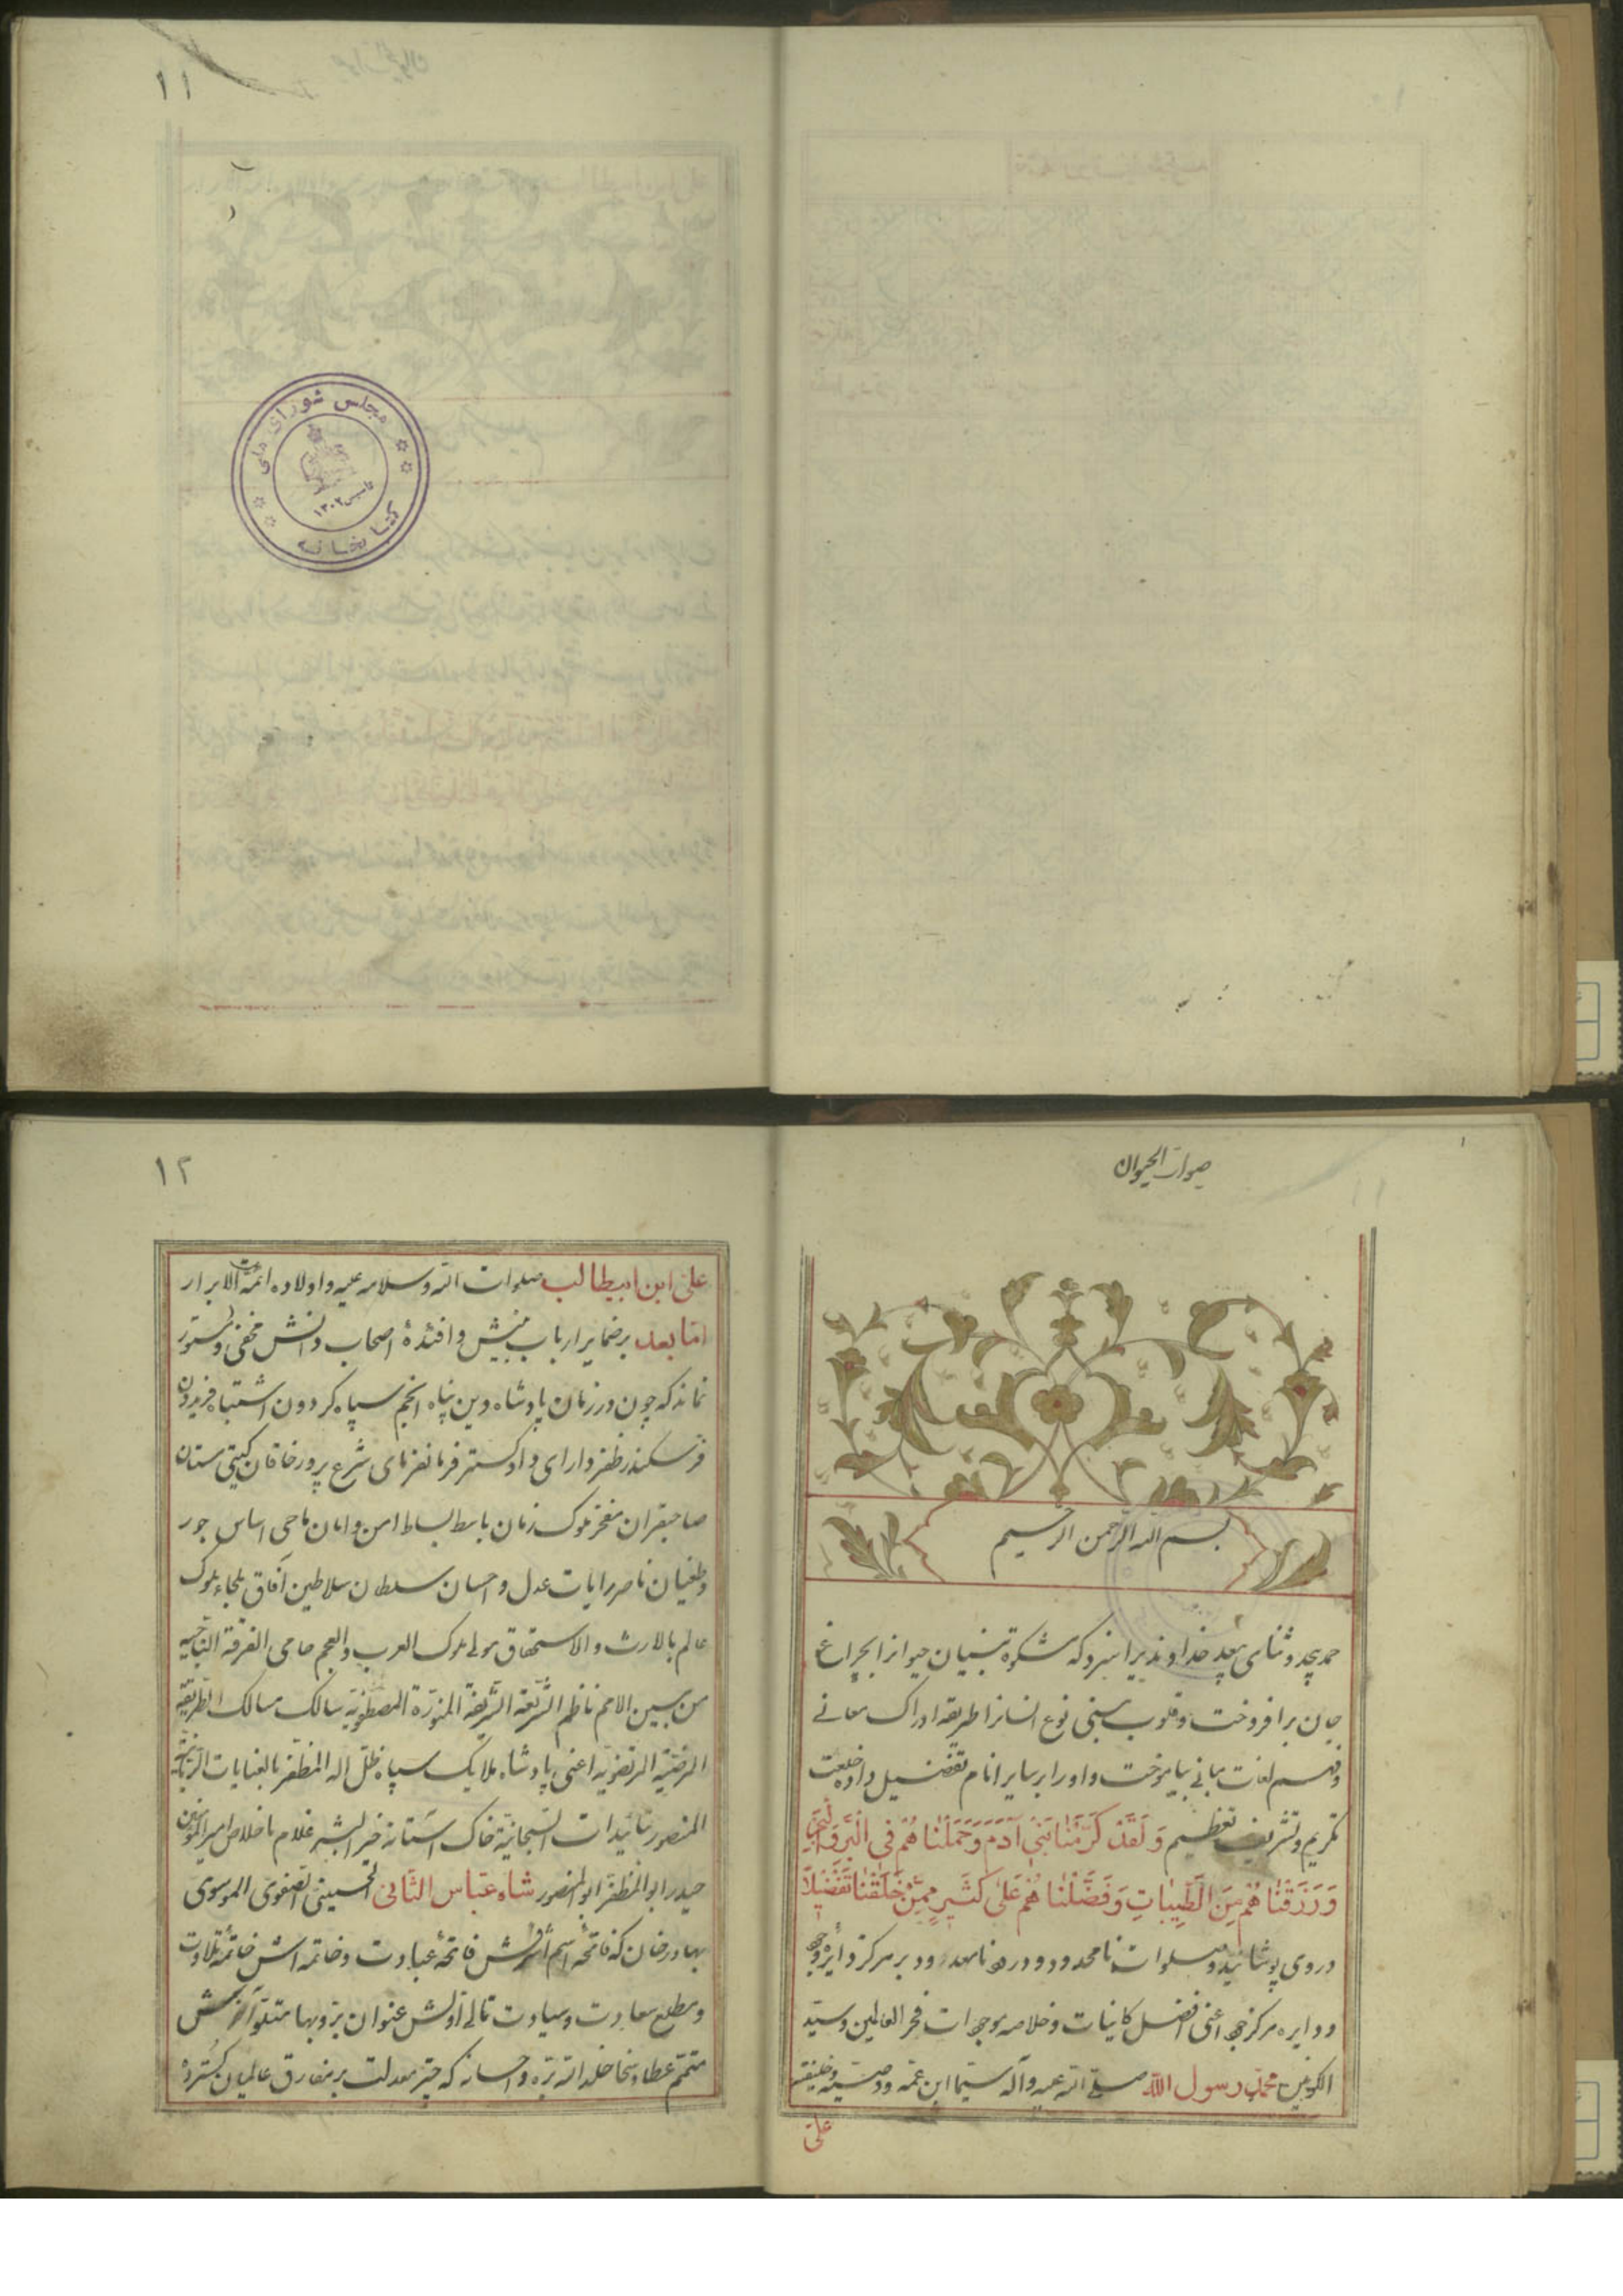 ۱۱
مجلس شورای ملی
تاسیس ۱۳۰۲
کتابخانه
۱
بسم الله الرحمن الرحیم
حمد بیحد و ثنای بیعد خداوندیرا سزد که مشکوة بنیان حیوانرا بچراغ
جان برافروخت و قلوب بنی نوع انسانرا طریقه ادراک معانے
و فهم لغات بیانے بیاموخت و اورا بر سایر انام تفضیل داده خلعت
تکریم و تشریف تعظیم وَلَقَدْ كَرَّمْنٰا بَنِىٓ اٰدَمَ وَحَمَلْنٰاهُمْ فِى الْبَرِّ وَالْبَحْرِ
وَرَزَقْنٰاهُمْ مِنَ الطَّيِّبٰاتِ وَفَضَّلْنٰاهُمْ عَلىٰ كَثيرٍ مِمَّنْ خَلَقْنٰا تَفْضيلاً
در وی پوشانید و صلوات نامحدود و درود نامعدود بر مرکز دائره وجود
و دایره مرکز جود اعنی افضل کاینات و خلاصه موجودات فخر العالمین و سیّد
الکونین محمّد رسول اللّه صلے الله علیه و آله سیّما ابن عمّه و وصیّه و خلیفته
علی
۱۲
علی ابن ابیطالب صلوات الله و سلامه علیه و اولاده ائمّة الابرار
امّا بعد بر ضمایر ارباب بینش و افئدهٔ اصحاب دانش مخفی و مستور
نماند که چون در زمان پادشاه دین پناه انجم سپاه کردون اشتباه فریدون
فر سکندر ظفر دارای دادکستر فرمانفرمای شرع پرور خاقان کیتی ستان
صاحبقران مفخر ملوک زمان باسط بساط امن و امان ماحی اساس جور
و طغیان ناصر رایات عدل و احسان سلطان سلاطین آفاق ملجاء ملوک
عالم بالارث و الاستحقاق مولے ملوک العرب و العجم حامی الفرقة الناجیه
من بین الامم ناظم الشریعة الشریفة المنوّرة المصطفویّة سالک مسالک الطریقة
الرضیّة المرتضویّه اعنی پادشاه ملایک سپاه ظلّ اله المظفّر بالعنایات الربانیّة
المنصور بتائیدات السبحانیّة خاک آستانه خیر البشر غلام باخلاص امیر المؤمنین
حیدر ابو المظفر ابو المنصور شاه عبّاس الثّانی الحسینی الصفوی الموسوی
بهادر خان که فاتحهٔ اسم اشرفش فاتحهٔ عبادت و خاتمه اش خاتمهٔ تلاوت
و مطلع سعادت و سیادت
متمّم عطا و سخا خلد الله برّه و احسانه که چتر معدلت بر مفارق عالمیان کسترده